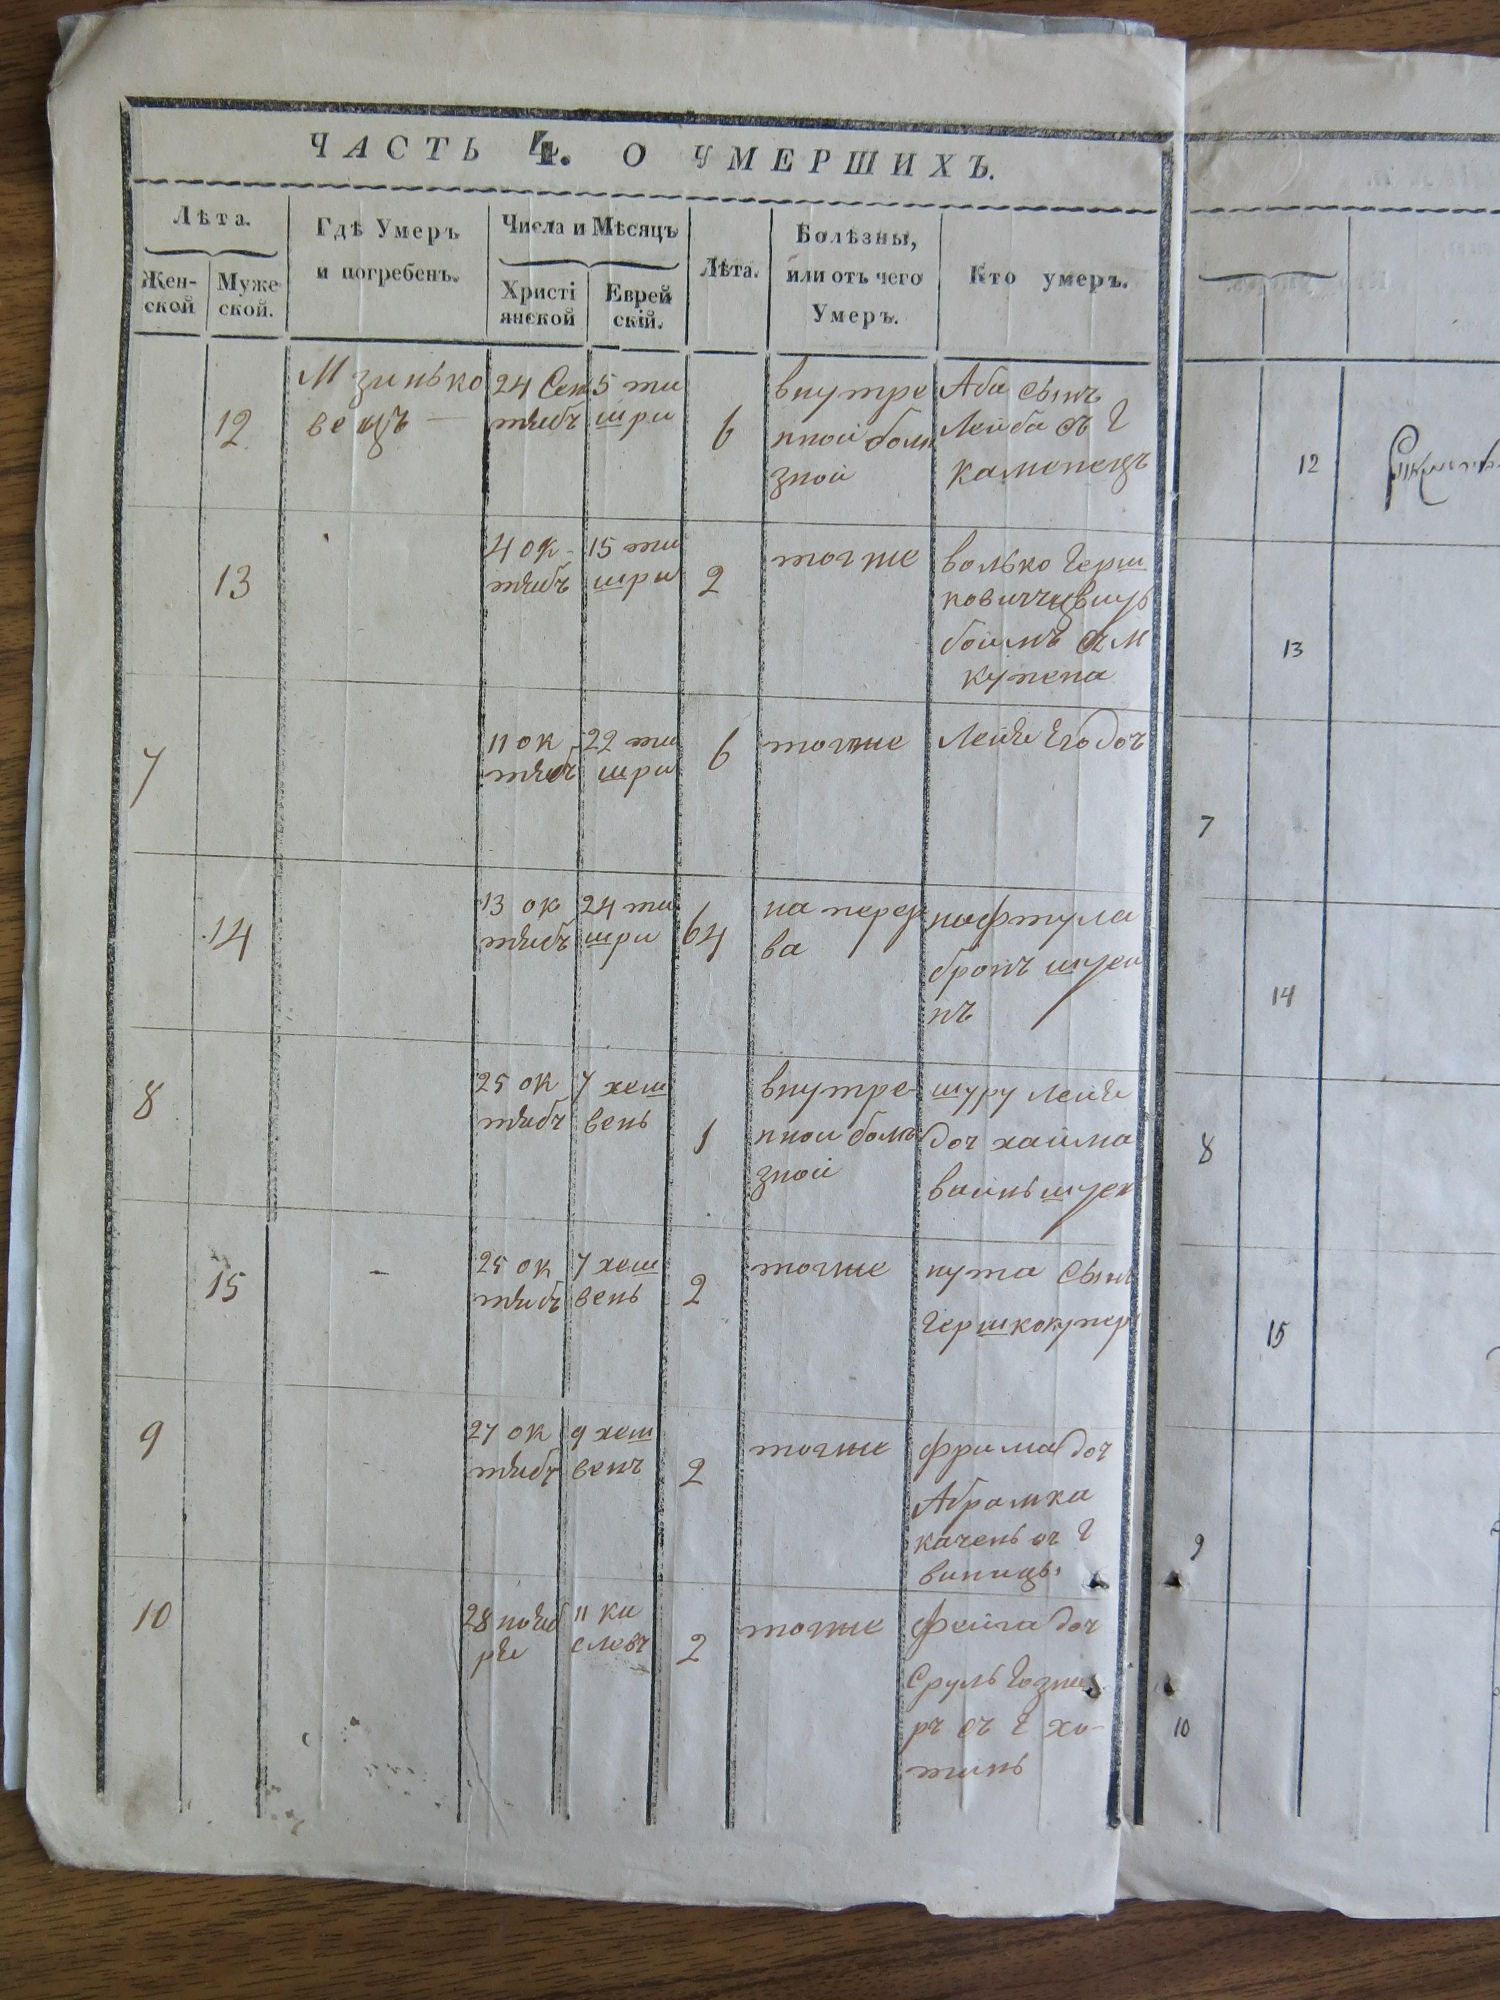 ЧАСТЬ 4. О УМЕРШИХЪ.
Лѣта.
Жен-
ской
Муже
ской.
Гдѣ Умеръ
и погребенъ.
Числа и Мѣсяцъ
Христі
янской
Еврей
скій.
Лѣта.
Болѣзны,
или отъ чего
Умеръ.
Кто умеръ.
12
М зинько
вецъ
24 Сен
тябъ
5 ти
шри
6
внутре
нной боле
зной
Аба сынъ
Лейба съ г
каменецъ
13
4 ок
тябъ
15 ти
шри
2
тогже
волько герш
ковичъ
боимъ м
купена
7
11 ок
тябъ
22 ти
шри
6
тогже
Лея его доч
14
13 ок
тябъ
24 ти
шри
64
ва
нафтула
нъ
8
25 ок
тябъ
7 хеш
вень
1
внутре-
нной боле
зной
Лея
доч хайма
15
25 ок
тябъ
7 хеш
вень
2
тогже
нута сынъ
гершко
9
27 ок
тябъ
9 хеш
венъ
2
тогже
фрима доч
Абрамка
качень г
виницы
10
28 нояб
ря
11 ки
слевъ
2
тогже
фейга доч
Сруль
ръ съ г хо-
тинь
12
13
7
14
8
15
9
10